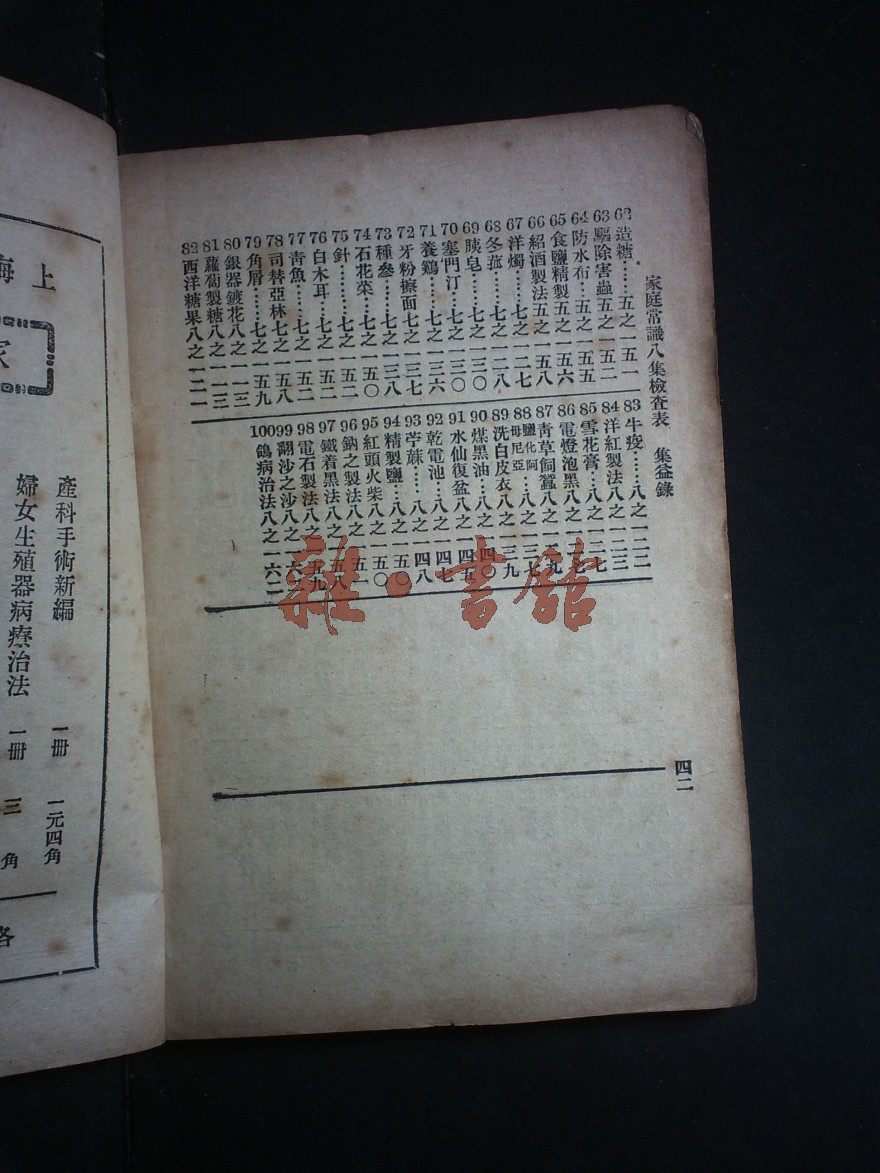 家庭常識八集檢查表　集益錄
62造糖……五之一五一
63驅除害蟲五之一五二
64防水布…五之一五五
65食鹽精製五之一五六
66紹酒製法五之一五八
67洋燭……七之一二七
68冬菰……七之一二八
69胰皂……七之一三〇
70塞門汀…七之一三〇
71養鷄……七之一三六
72牙粉擦面七之一三七
73種參……七之一三八
74石花菜…七之一五〇
75針………七之一五二
76白木耳…七之一五二
77青魚……七之一五七
78司替亞林七之一五八
79角屑……七之一五九
80銀器鍍花八之一一三
81蘿蔔製糖八之一一三
82西洋糖果八之一二一
83牛疫……八之一二二
84洋紅製法八之一二三
85雪花膏…八之一二七
86電燈泡黑八之一
87青草飼蠶八之一二九
88鹽化阿毋尼亞八之一三七
89洗白皮衣八之一三九
90煤黑油…八之一四〇
91水仙復盆八之一四五
92乾電池…八之一四七
93苧蔴……八之一四八
94精製鹽…八之一五〇
95紅頭火柴八之一五〇
96鈉之製法八之一五一
97鐵着黑法八之一五八
98電石製法八之一五九
99翻沙之沙八之一六
100鴿病治法八之一六二
四二
上海
家
產科手術新編　一冊　一元四角
婦女生殖器病療治法　一冊　三角
各
雜·書館